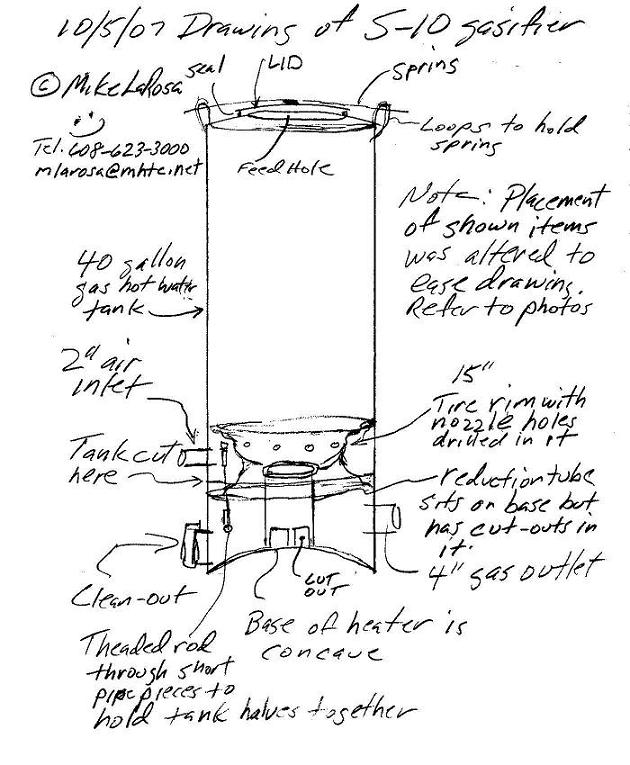 10/5/07 Drawing of S-10 gasifier
© Mike LaRosa
Tel. 608-623-3000
mlarosa@mhtc.net
seal
LID
spring
Loops to hold
spring
Feed Hole
Note: Placement
of shown items
was altered to
ease drawing.
Refer to photos
40 gallon
gas hot water
tank
2" air
inlet
15"
Tire rim with
nozzle holes
drilled in it
Tank cut
here
reduction tube
sits on base but
has cut-outs in
it.
4" gas outlet
Clean-out
CUT
OUT
Base of heater is
concave
Theaded rod
through short
pipe pieces to
hold tank halves together